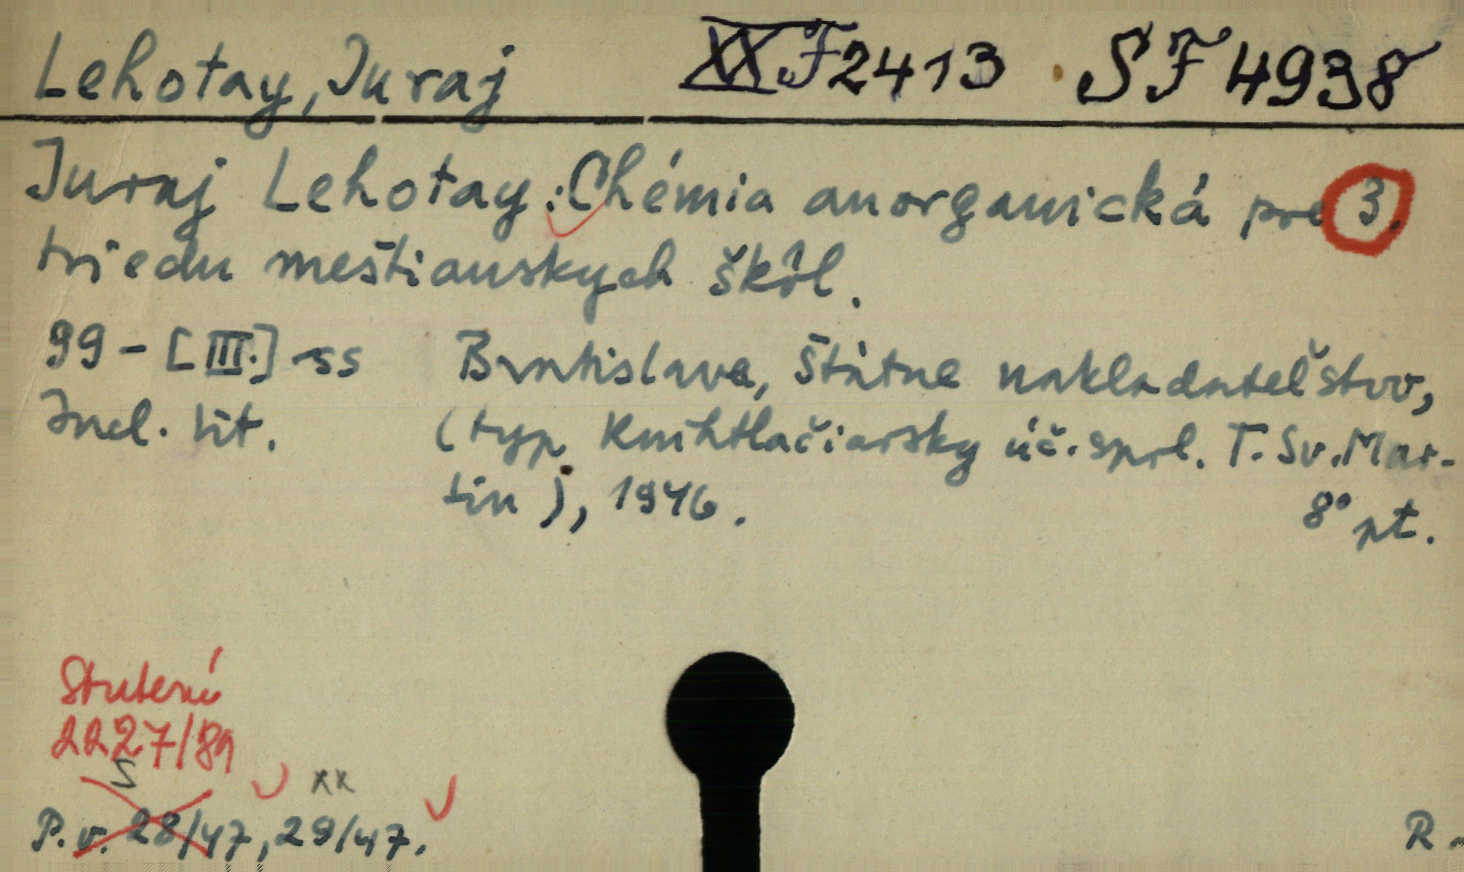 Lehotay, Juraj XX F 2413 SF 4938
Juraj Lehotay: Chémia anorganická pre 3.
triedu meštianskych škôl.
99 - [III.] ss Bratislava, Štátne nakladateľstvo,
Incl. tit. (typ Knihtlačiarsky úč. spol. T. Sv. Mar-
tin), 1946. 8° pt.
2227/89
S xx
P. v. 28/47, 29/47. R